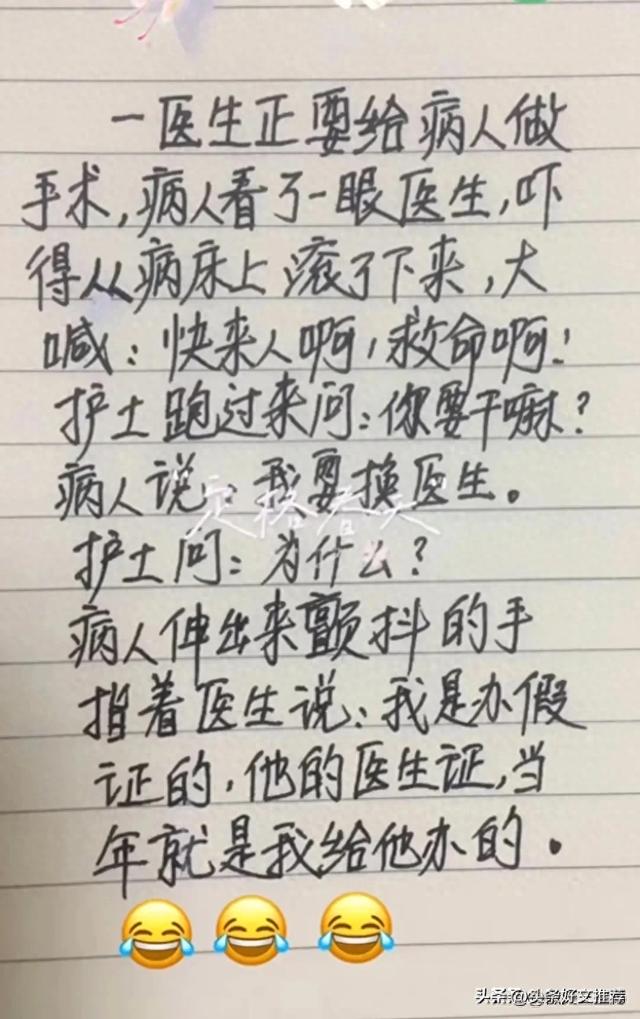 一医生正要给病人做
手术,病人看了一眼医生,吓
得从病床上滚了下来,大
喊：快来人啊,救命啊！
护士跑过来问：你要干嘛？
病人说：我要换医生。
定格春天
护士问：为什么？
病人伸出来颤抖的手
指着医生说：我是办假
证的,他的医生证,当
年就是我给他办的。
头条@头条好文推荐